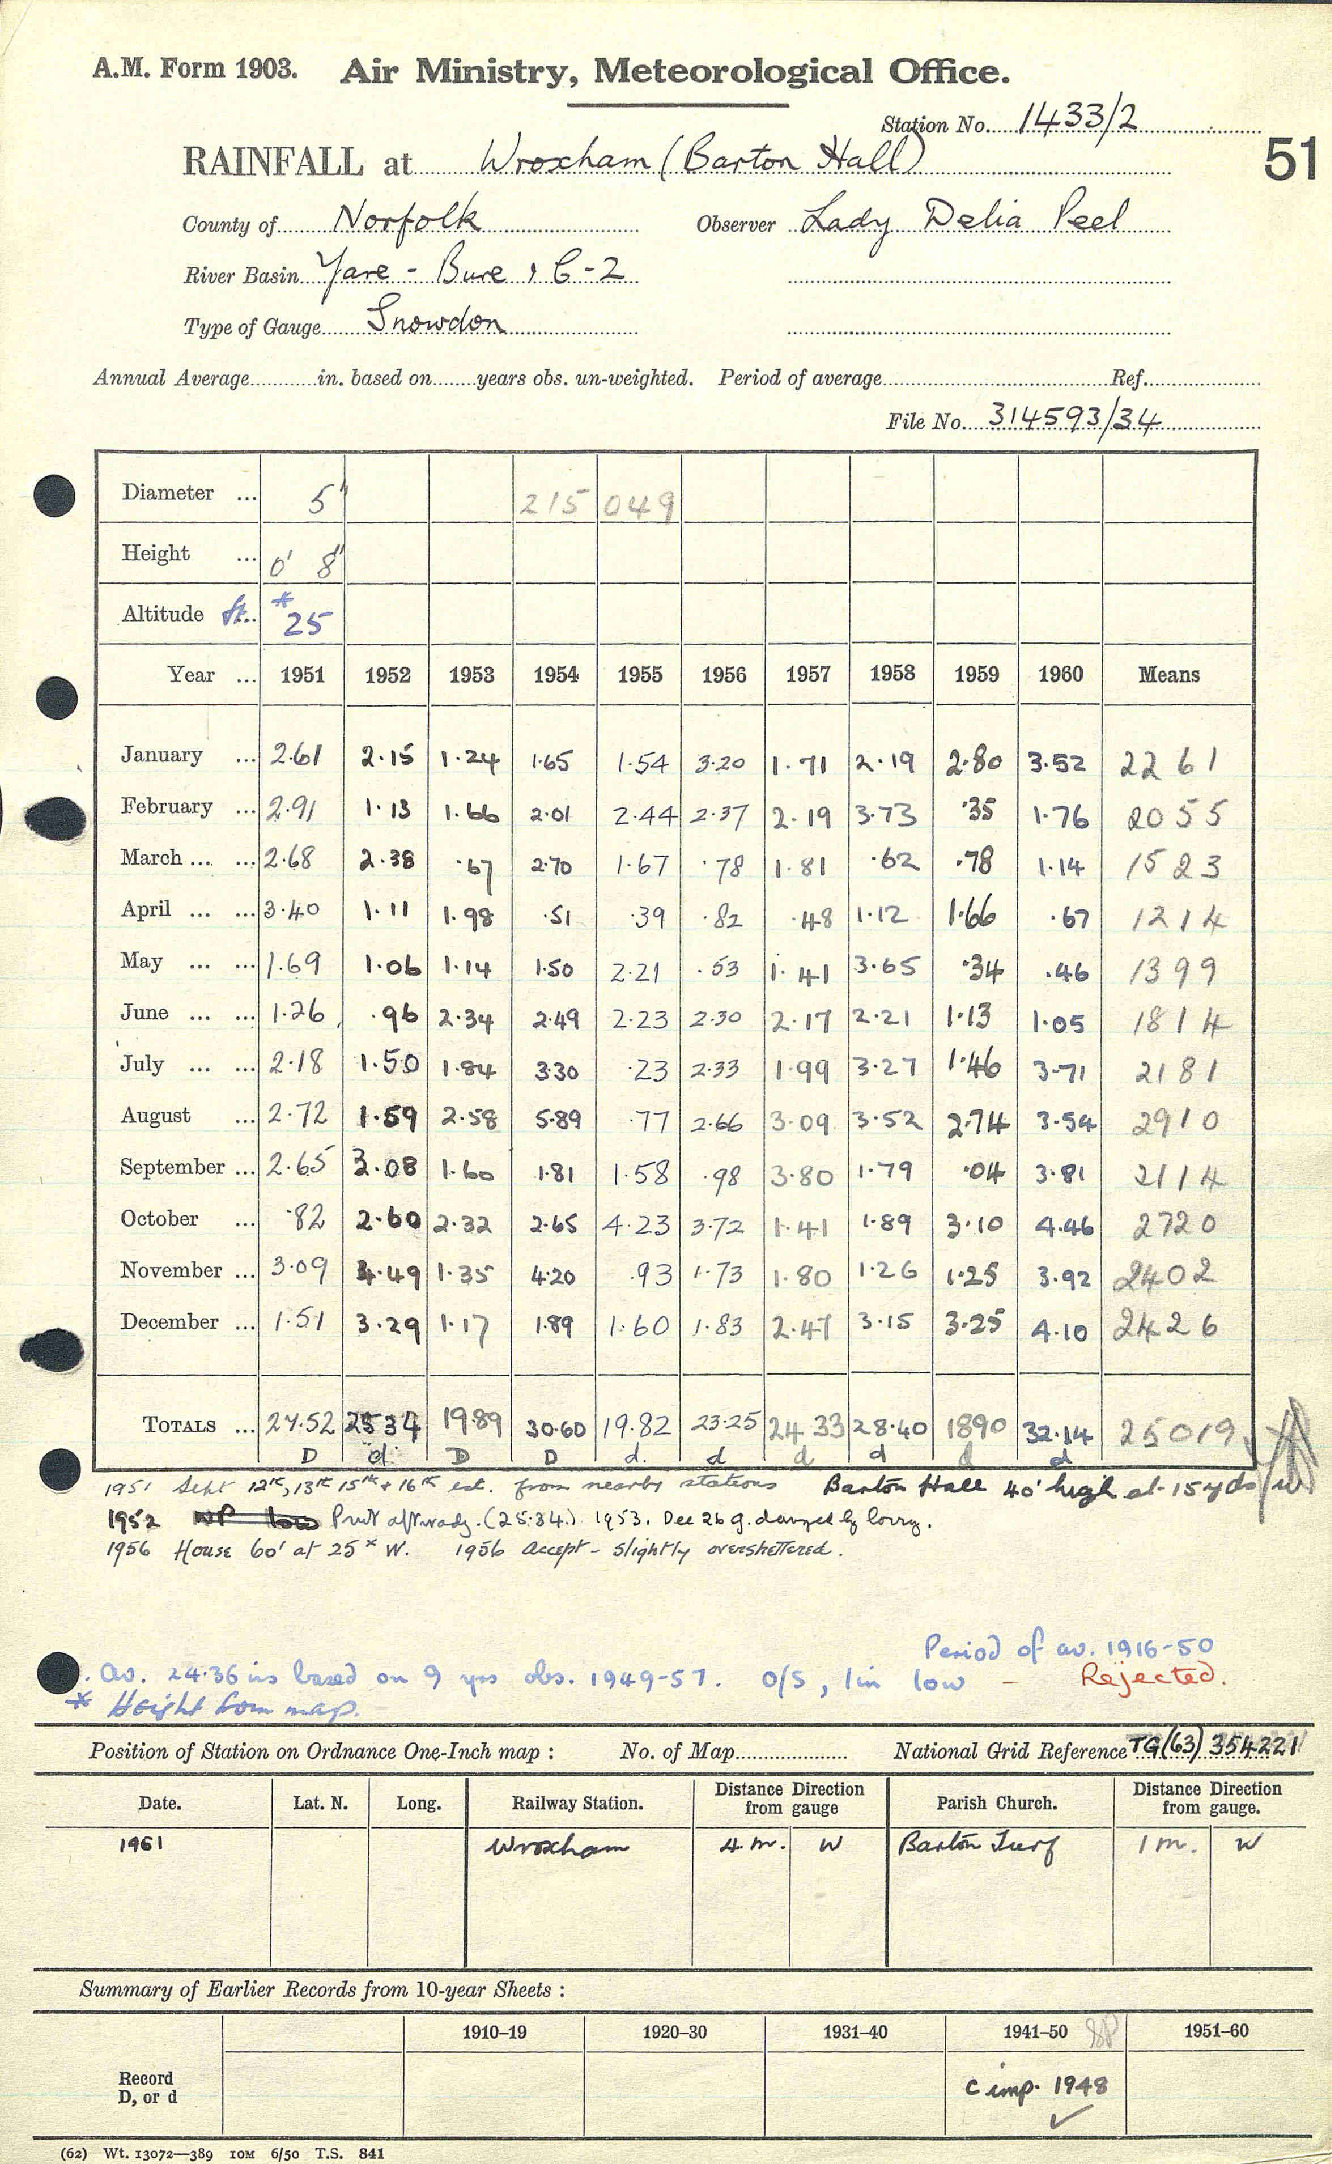 A.M. Form 1903. Air Ministry, Meteorological Office.
Station No. 1433/2
RAINFALL at Wroxham (Barton Hall)
51
County of Norfolk Observer Lady Delia Peel
River Basin Yare - Bure, 6-2
Type of Gauge Snowdon
Annual Average in. based on years obs. un-weighted. Period of average Ref.
File No. 314593/34
Diameter ... 5" 215 049
Height ... 0' 8"
Altitude ft.. * 25
Year ... 1951 1952 1953 1954 1955 1956 1957 1958 1959 1960 Means
January ... 2.61 2.15 1.24 1.65 1.54 3.20 1.71 2.19 2.80 3.52 2261
February ... 2.91 1.13 1.66 2.01 2.44 2.37 2.19 3.73 .35 1.76 2055
March ... ... 2.68 2.38 .67 2.70 1.67 .78 1.81 .62 .78 1.14 1523
April ... ... 3.40 1.11 1.98 .51 .39 .82 .48 1.12 1.66 .67 1214
May ... ... 1.69 1.06 1.14 1.50 2.21 .53 1.41 3.65 .34 .46 1399
June ... ... 1.26 .96 2.34 2.49 2.23 2.30 2.17 2.21 1.13 1.05 1814
July ... ... 2.18 1.50 1.84 3.30 .23 2.33 1.99 3.27 1.46 3.71 2181
August ... 2.72 1.59 2.58 5.89 .77 2.66 3.09 3.52 2.74 3.54 2910
September ... 2.65 3.08 1.60 1.81 1.58 .98 3.80 1.79 .04 3.81 2114
October ... .82 2.60 2.32 2.65 4.23 3.72 1.41 1.89 3.10 4.46 2720
November ... 3.09 4.49 1.35 4.20 .93 1.73 1.80 1.26 1.25 3.92 2402
December ... 1.51 3.29 1.17 1.89 1.60 1.83 2.47 3.15 3.25 4.10 2426
TOTALS ... 27.52 2534 1989 30.60 19.82 23.25 24.33 28.40 1890 32.14 25019
D d D D d. d d d d d
1951 Sept 12th, 13th 15th + 16th est. from nearby stations Barton Hall 40' high at 15 yds W
1952 Print afterwds. (25.34). 1953. Dec 26 g. damged by lorry.
1956 House 60' at 25x W. 1956 Accept - slightly oversheltered.
Period of av. 1916-50
. Av. 24.36 ins based on 9 yrs obs. 1949-57. O/S, 1in low - Rejected.
* Height from map.
Position of Station on Ordnance One-Inch map : No. of Map National Grid Reference TG(63) 354221
Date. Lat. N. Long. Railway Station. Distance from gauge Direction Parish Church. Distance from gauge. Direction
1961 Wroxham 4 m. W Barton Turf 1 m. W
Summary of Earlier Records from 10-year Sheets :
1910–19 1920–30 1931–40 1941–50 1951–60
Record D, or d C imp. 1948 ✓
(62) Wt. 13072—389 10M 6/50 T.S. 841